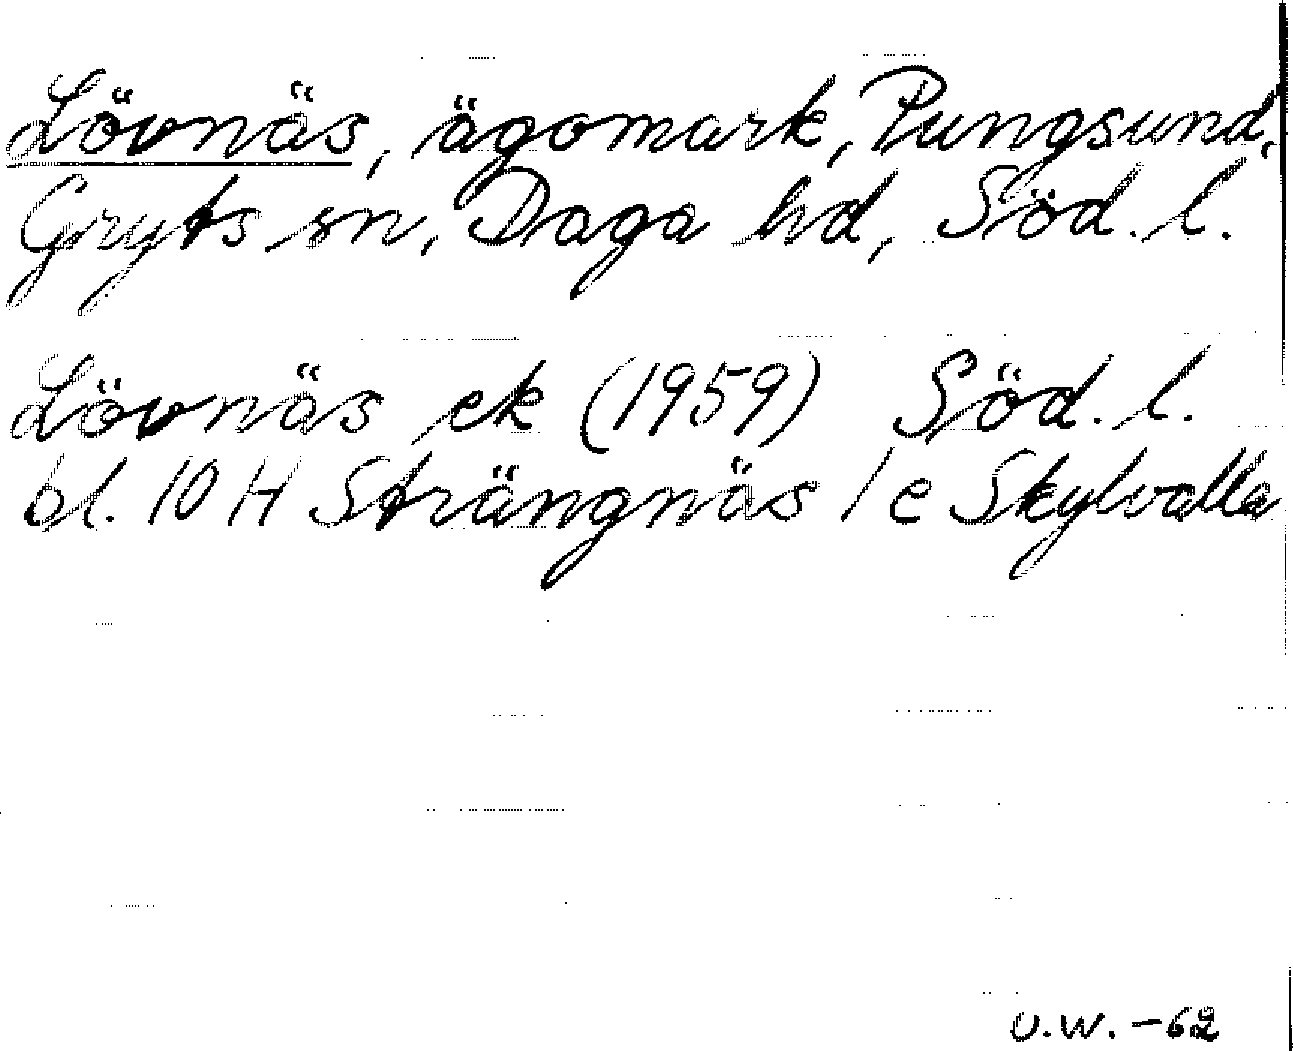 Lövnäs, ägomark, Pungsund,
Gryts sn, Daga hd, Söd. l.
Lövnäs ek (1959) Söd. l.
bl. 10 H Strängnäs / e Skylvalla
U.W. -62